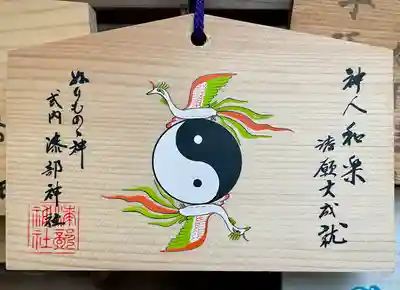 神人和楽
諸願大成就
ぬりものの神
式内 漆部神社
漆部神社